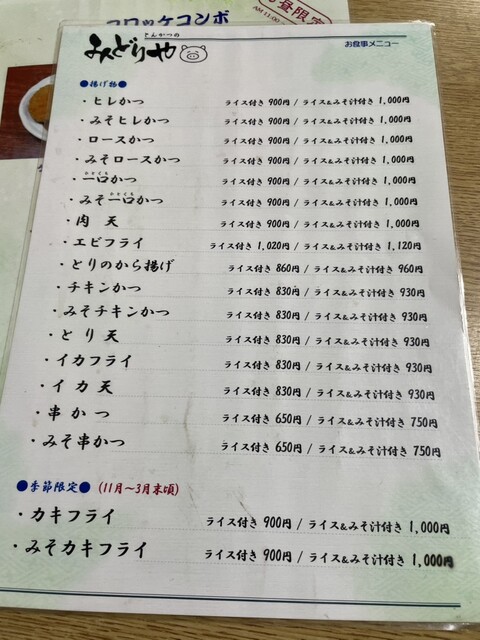 コロッケコンボ
昼限定
AM 11:00
とんかつの
みどりや
お食事メニュー
●揚げ物●
・ヒレかつ ライス付き 900円 / ライス&みそ汁付き 1,000円
・みそヒレかつ ライス付き 900円 / ライス&みそ汁付き 1,000円
・ロースかつ ライス付き 900円 / ライス&みそ汁付き 1,000円
・みそロースかつ ライス付き 900円 / ライス&みそ汁付き 1,000円
・一口かつ ライス付き 900円 / ライス&みそ汁付き 1,000円
・みそ一口かつ ライス付き 900円 / ライス&みそ汁付き 1,000円
・肉 天 ライス付き 900円 / ライス&みそ汁付き 1,000円
・エビフライ ライス付き 1,020円 / ライス&みそ汁付き 1,120円
・とりのから揚げ ライス付き 860円 / ライス&みそ汁付き 960円
・チキンかつ ライス付き 830円 / ライス&みそ汁付き 930円
・みそチキンかつ ライス付き 830円 / ライス&みそ汁付き 930円
・とり天 ライス付き 830円 / ライス&みそ汁付き 930円
・イカフライ ライス付き 830円 / ライス&みそ汁付き 930円
・イカ天 ライス付き 830円 / ライス&みそ汁付き 930円
・串かつ ライス付き 650円 / ライス&みそ汁付き 750円
・みそ串かつ ライス付き 650円 / ライス&みそ汁付き 750円
●季節限定● (11月~3月末頃)
・カキフライ ライス付き 900円 / ライス&みそ汁付き 1,000円
・みそカキフライ ライス付き 900円 / ライス&みそ汁付き 1,000円